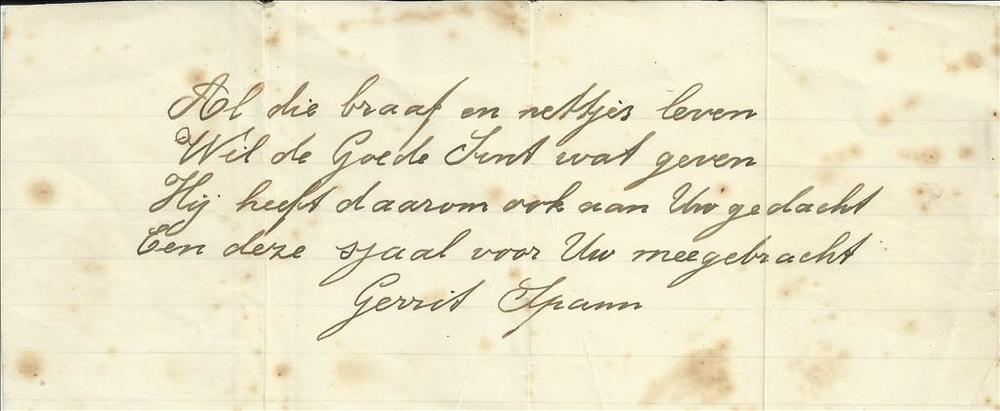 Al die braaf en nettjes leven
Wil de Goede Sint wat geven
Hij heeft daarom ook aan Uw gedacht
Een deze sjaal voor Uw meegebracht
Gerrit Spaun